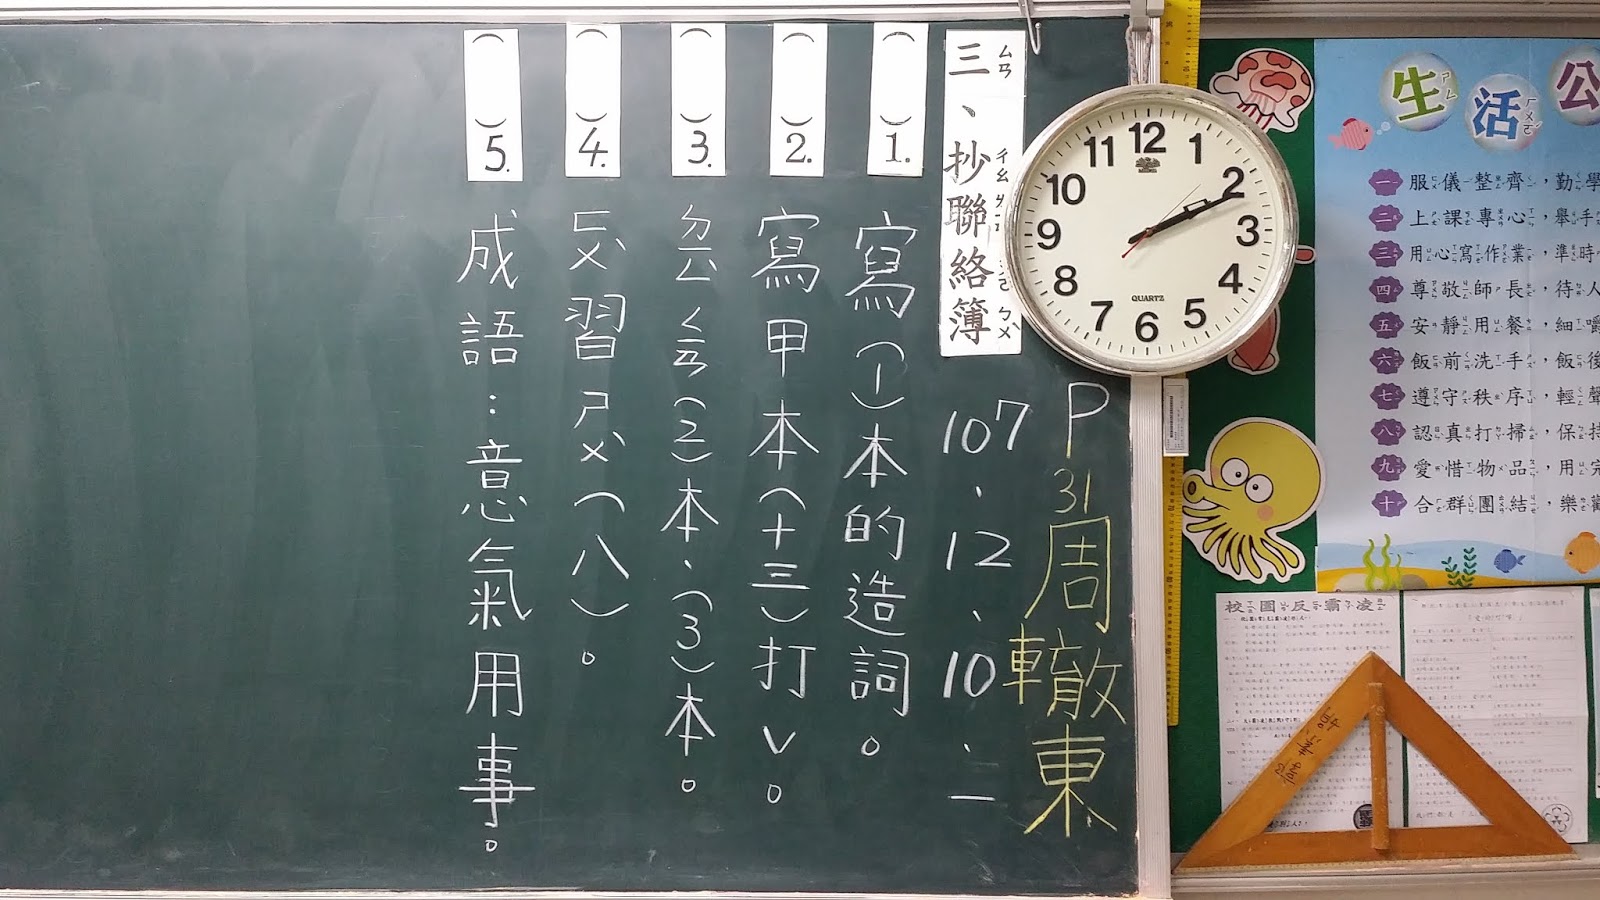 P31周轍東
三、抄聯絡簿
107、12、10、二
( )1. 寫(1)本的造詞。
( )2. 寫甲本(十三)打ˇ。
( )3. ㄉㄧㄥㄑㄧㄢ(2)本、(3)本。
( )4. ㄈㄨˋ習ㄕㄨˋ(八)。
( )5. 成語:意氣用事。
12
1
2
3
4
5
6
7
8
9
10
11
QUARTZ
生活公
一 服儀整齊,勤學
二 上課專心,舉手
三 用心寫作業,準時
四 尊敬師長,待人
五 安靜用餐,細嚼
六 飯前洗手,飯後
七 遵守秩序,輕聲
八 認真打掃,保持
九 愛惜物品,用完
十 合群團結,樂
校園反霸凌